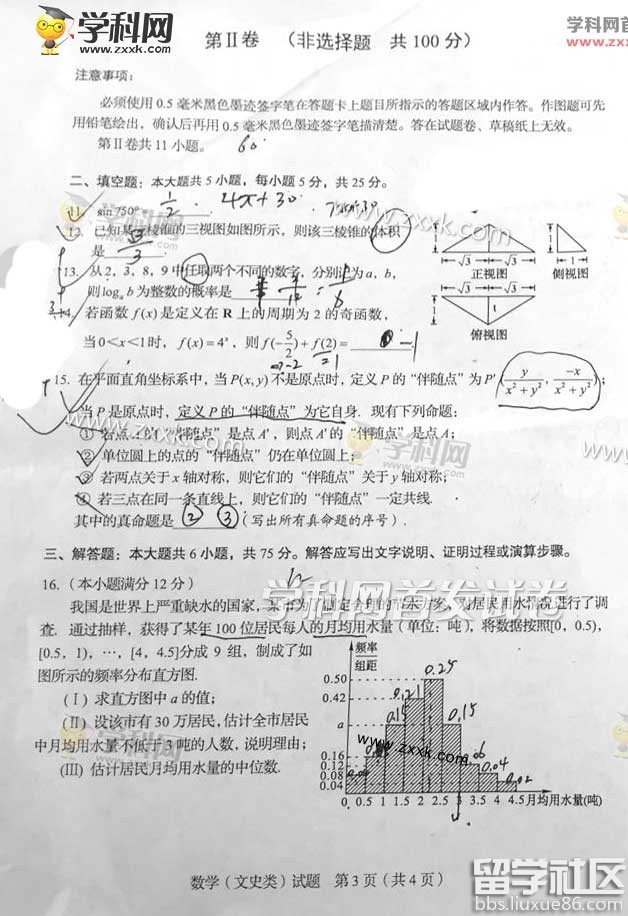 学科网
www.zxxk.com
学科网
www.zxxk
第Ⅱ卷 （非选择题 共100分）
注意事项：
必须使用0.5毫米黑色墨迹签字笔在答题卡上题目所指示的答题区域内作答。作图题可先
用铅笔绘出，确认后再用0.5毫米黑色墨迹签字笔描清楚。答在试题卷、草稿纸上无效。
第Ⅱ卷共11小题。
二、填空题：本大题共5小题，每小题5分，共25分。
11. sin 750° 1/2 . 4π+30
12. 已知某三棱锥的三视图如图所示，则该三棱锥的体积
是 √3/3
√3 √3 1
正视图 侧视图
√3 √3
1
俯视图
13. 从2，3，8，9中任取两个不同的数字，分别记为a，b，
则log_a b为整数的概率是 = 1/6
14. 若函数f(x)是定义在R上的周期为2的奇函数，
当0<x<1时，f(x)=4^x，则f(-5/2)+f(2)=
15. 在平面直角坐标系中，当P(x, y)不是原点时，定义P的“伴随点”为P′(y/(x²+y²), -x/(x²+y²))；
当P是原点时，定义P的“伴随点”为它自身. 现有下列命题：
①若点A的“伴随点”是点A′，则点A′的“伴随点”是点A；
②单位圆上的点的“伴随点”仍在单位圆上；
③若两点关于x轴对称，则它们的“伴随点”关于y轴对称；
④若三点在同一条直线上，则它们的“伴随点”一定共线.
其中的真命题是 ② ③ (写出所有真命题的序号).
三、解答题：本大题共6小题，共75分。解答应写出文字说明、证明过程或演算步骤。
学科网首发试卷
16.（本小题满分12分）
我国是世界上严重缺水的国家，某市为了制定合理的节水方案，对居民用水情况进行了调
查. 通过抽样，获得了某年100位居民每人的月均用水量（单位：吨），将数据按照[0，0.5)，
[0.5，1)，…，[4，4.5]分成9组，制成了如
图所示的频率分布直方图.
(Ⅰ) 求直方图中a的值；
(Ⅱ) 设该市有30万居民，估计全市居民
中月均用水量不低于3吨的人数，说明理由；
(Ⅲ) 估计居民月均用水量的中位数.
频率
组距
0.50
0.42
a
0.16
0.12
0.08
0.04
0.25
0.21
0.15
0.04
0.02
0 0.5 1 1.5 2 2.5 3 3.5 4 4.5 月均用水量(吨)
www.zxxk.com
数学（文史类）试题 第3页（共4页）
留学社区
bbs.liuxue86.com